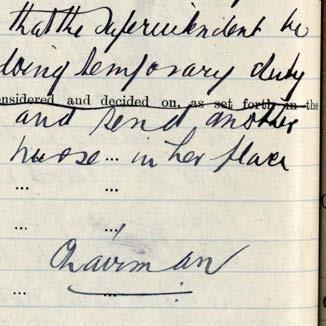 that the Superintendent be
doing temporary duty
onsidered and decided on, as set forth in the
and send another
nurse ... in her place
... ...
... ...
Chairman
... ...